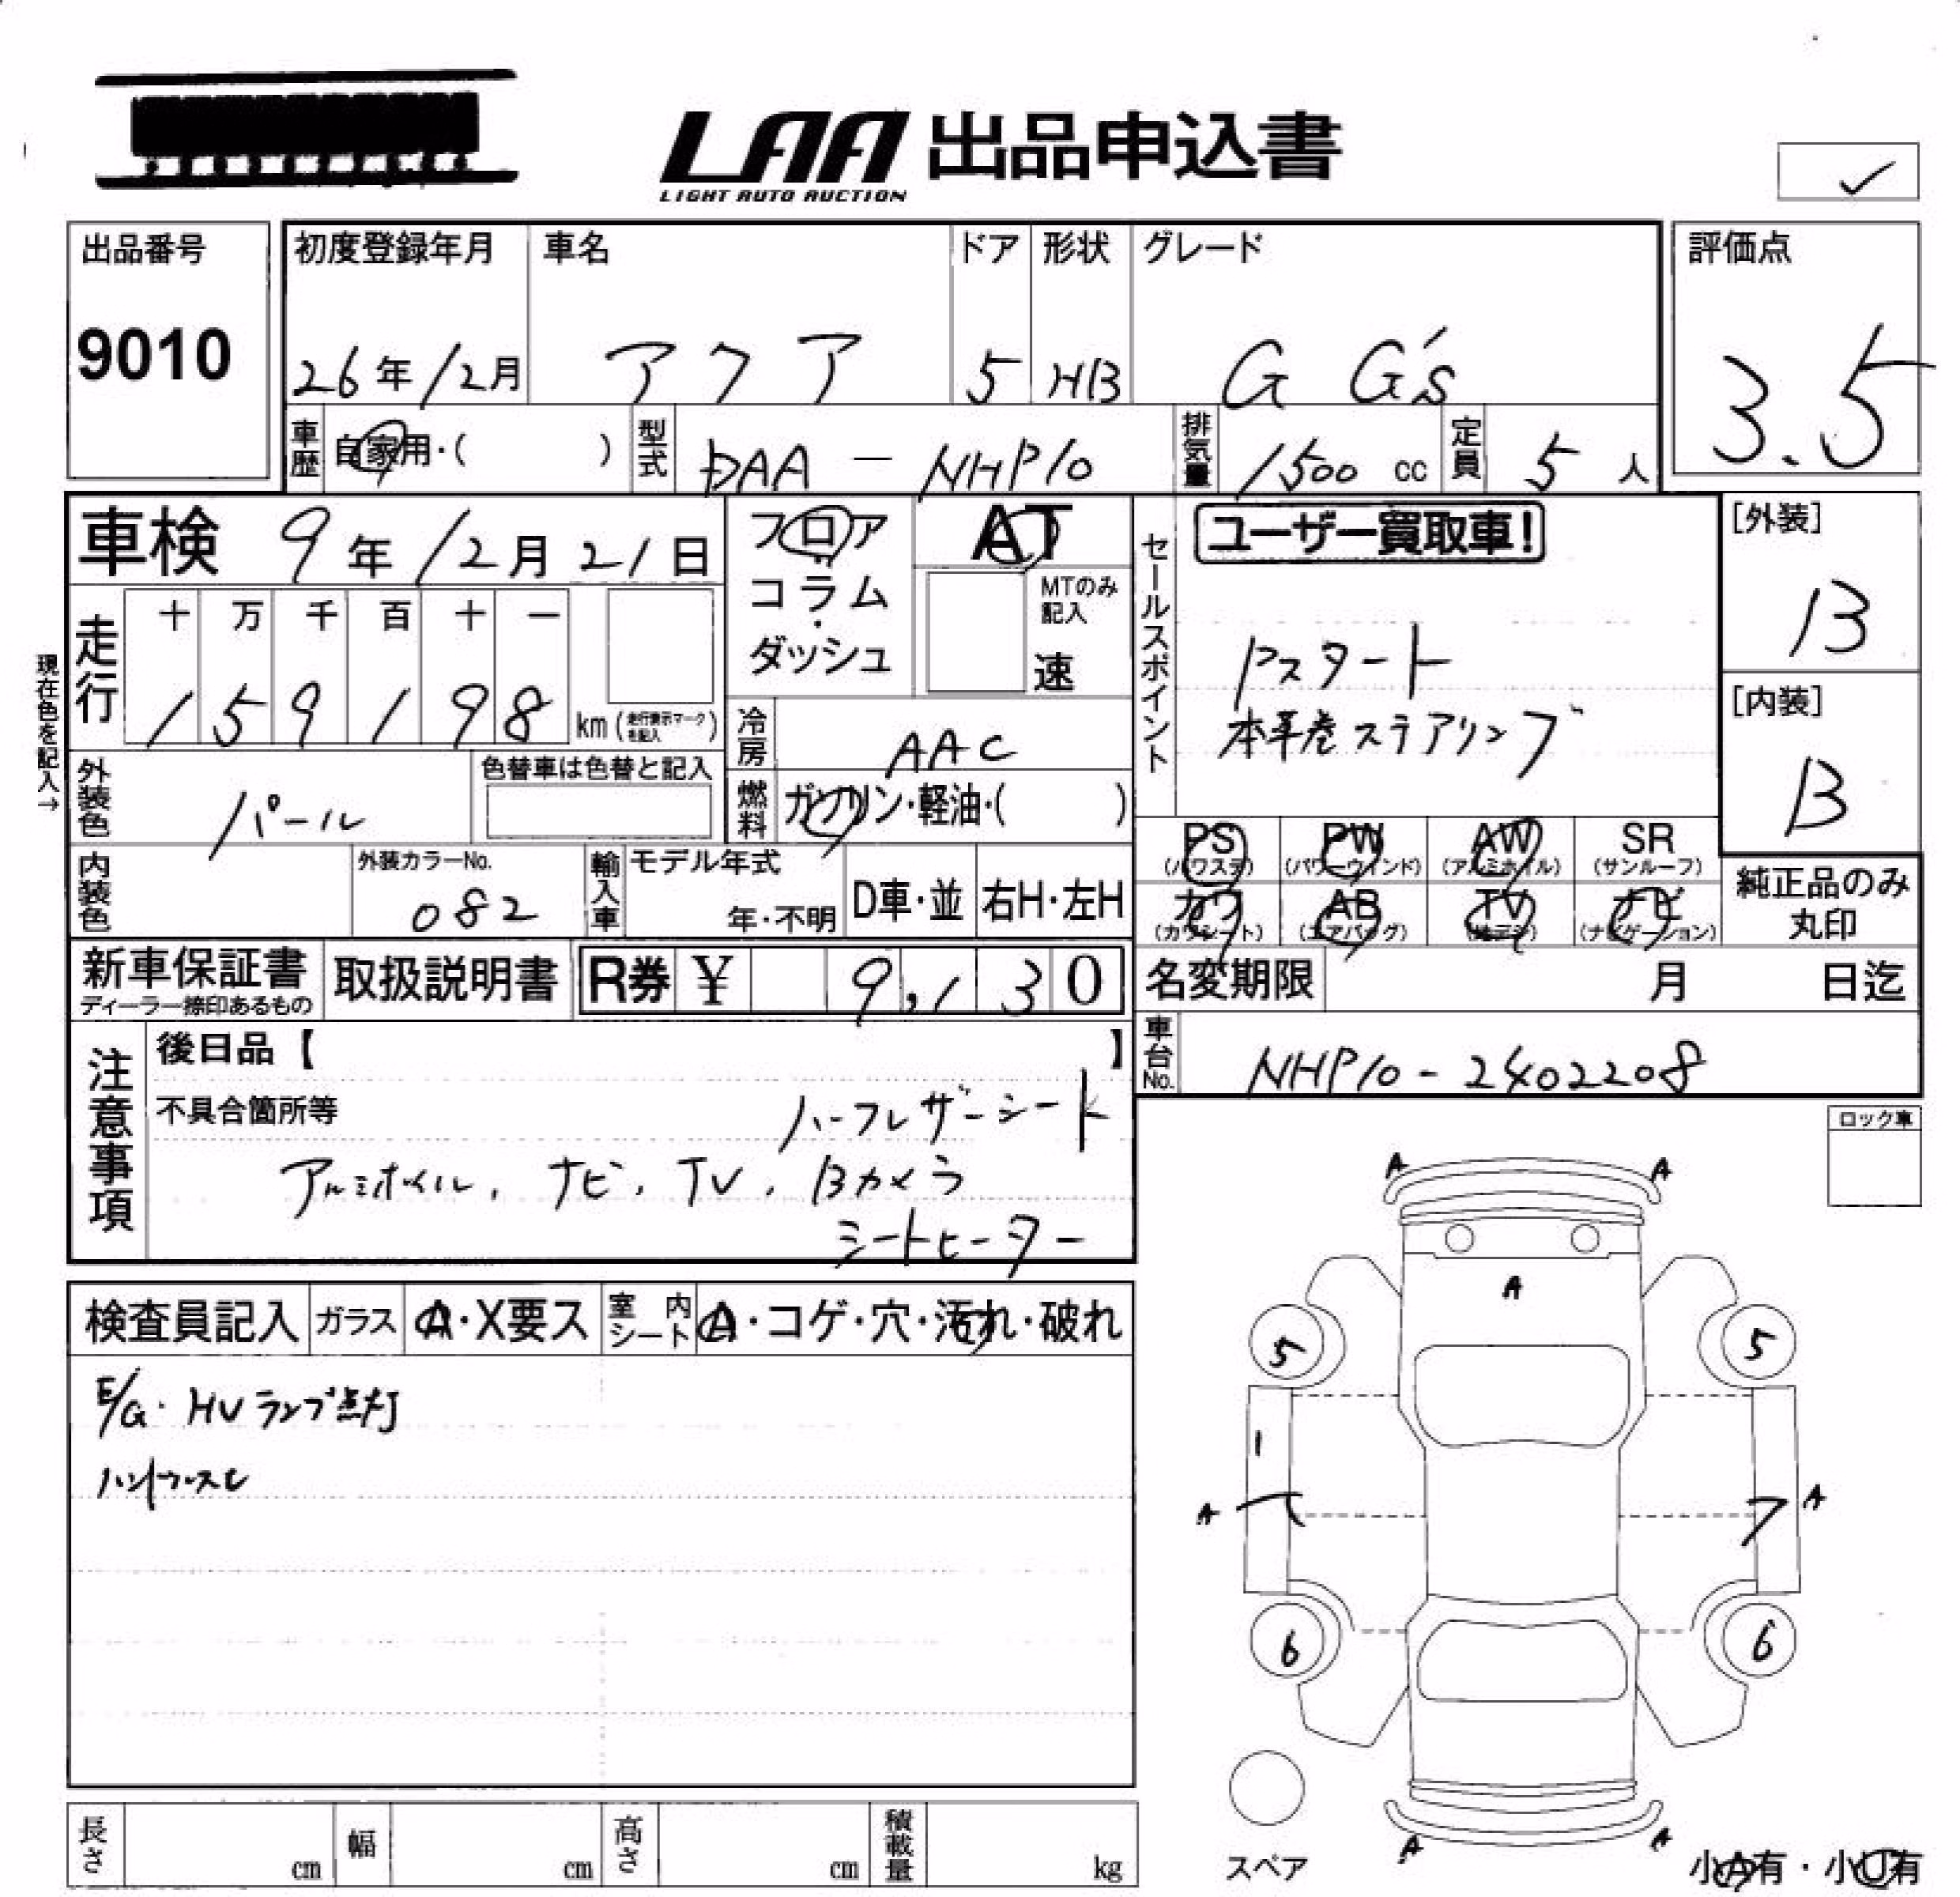 LAA 出品申込書
LIGHT AUTO AUCTION
出品番号
9010
初度登録年月
26年12月
車名
アクア
ドア
5
形状
HB
グレード
G G's
評価点
3.5
車歴 自家用・( )
型式 DAA - NHP10
排気量 1500 cc
定員 5 人
車検 9年12月21日
フロア
コラム
ダッシュ
AT
MTのみ記入
速
セールスポイント
ユーザー買取車!
Pスタート
本革巻ステアリング
[外装]
B
[内装]
B
現在色を記入→
走行
十 万 千 百 十 一
1 5 9 1 9 8 km (走行表示マークを記入)
冷房 AAC
燃料 ガソリン・軽油・( )
外装色 パール
色替車は色替と記入
内装色
外装カラーNo.
082
輸入車 モデル年式
年・不明
D車・並
右H・左H
PS (パワステ)
PW (パワーウィンド)
AW (アルミホイル)
SR (サンルーフ)
カワ (カワシート)
AB (エアバッグ)
TV (地デジ)
ナビ (ナビゲーション)
純正品のみ
丸印
新車保証書
ディーラー捺印あるもの
取扱説明書
R券 ¥ 9,130
名変期限 月 日迄
車台No. NHP10-2402208
注意事項
後日品【 】
不具合箇所等
ハーフレザーシート
アルミホイル, ナビ, TV, Bカメラ
シートヒーター
ロック車
検査員記入
ガラス A・X要ス
室内シート A・コゲ・穴・汚れ・破れ
E/G・HVランプ点灯
ハンドルスレ
A A
A
5 5
1
A A
6 6
A A
スペア
小A有・小U有
長さ cm
幅 cm
高さ cm
積載量 kg